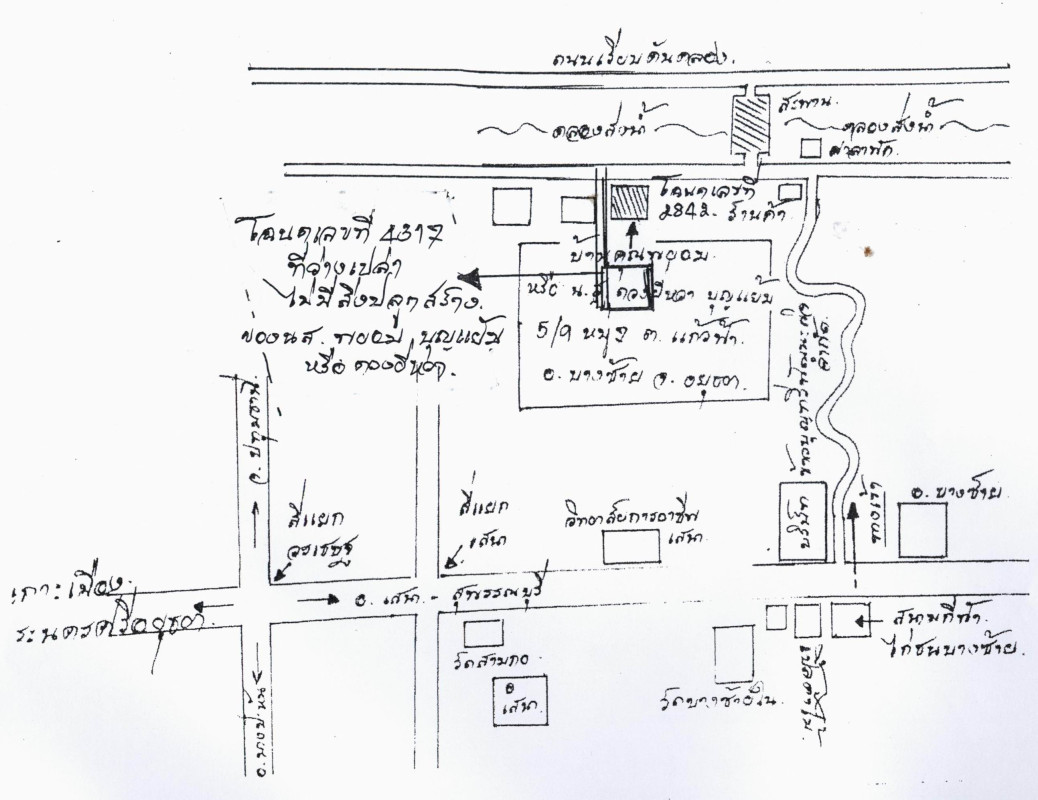 ถนนเรียบคันคลอง.
สะพาน.
คลองส่งน้ำ
คลองส่งน้ำ
ศาลาพัก.
โฉนดเลขที่
2842.
ร้านค้า.
โฉนดเลขที่ 4317
ที่ว่างเปล่า
ไม่มีสิ่งปลูกสร้าง.
ของนส. พยอม บุญแย้ม
หรือ ดวงยีหวา.
บ้านคุณพยอม.
หรือ น.ส ดวงยีหวา บุญแย้ม
5/9 หมู่ 2 ต. แก้วฟ้า.
อ. บางซ้าย จ. อยุธยา.
จ. ปทุมธานี.
สี่แยก
วรเชษฐ
สี่แยก
เสนา
วิทยาลัยการอาชีพ
เสนา.
อ. บางซ้าย.
เกาะเมือง.
ระนครศรีอยุธยา.
อ. เสนา. - สุพรรณบุรี
วัดสามกอ.
อ
เสนา.
วัดบางซ้ายใน.
สนามกีฬา.
ไก่ชนบางซ้าย.
อ. บางปะหัน